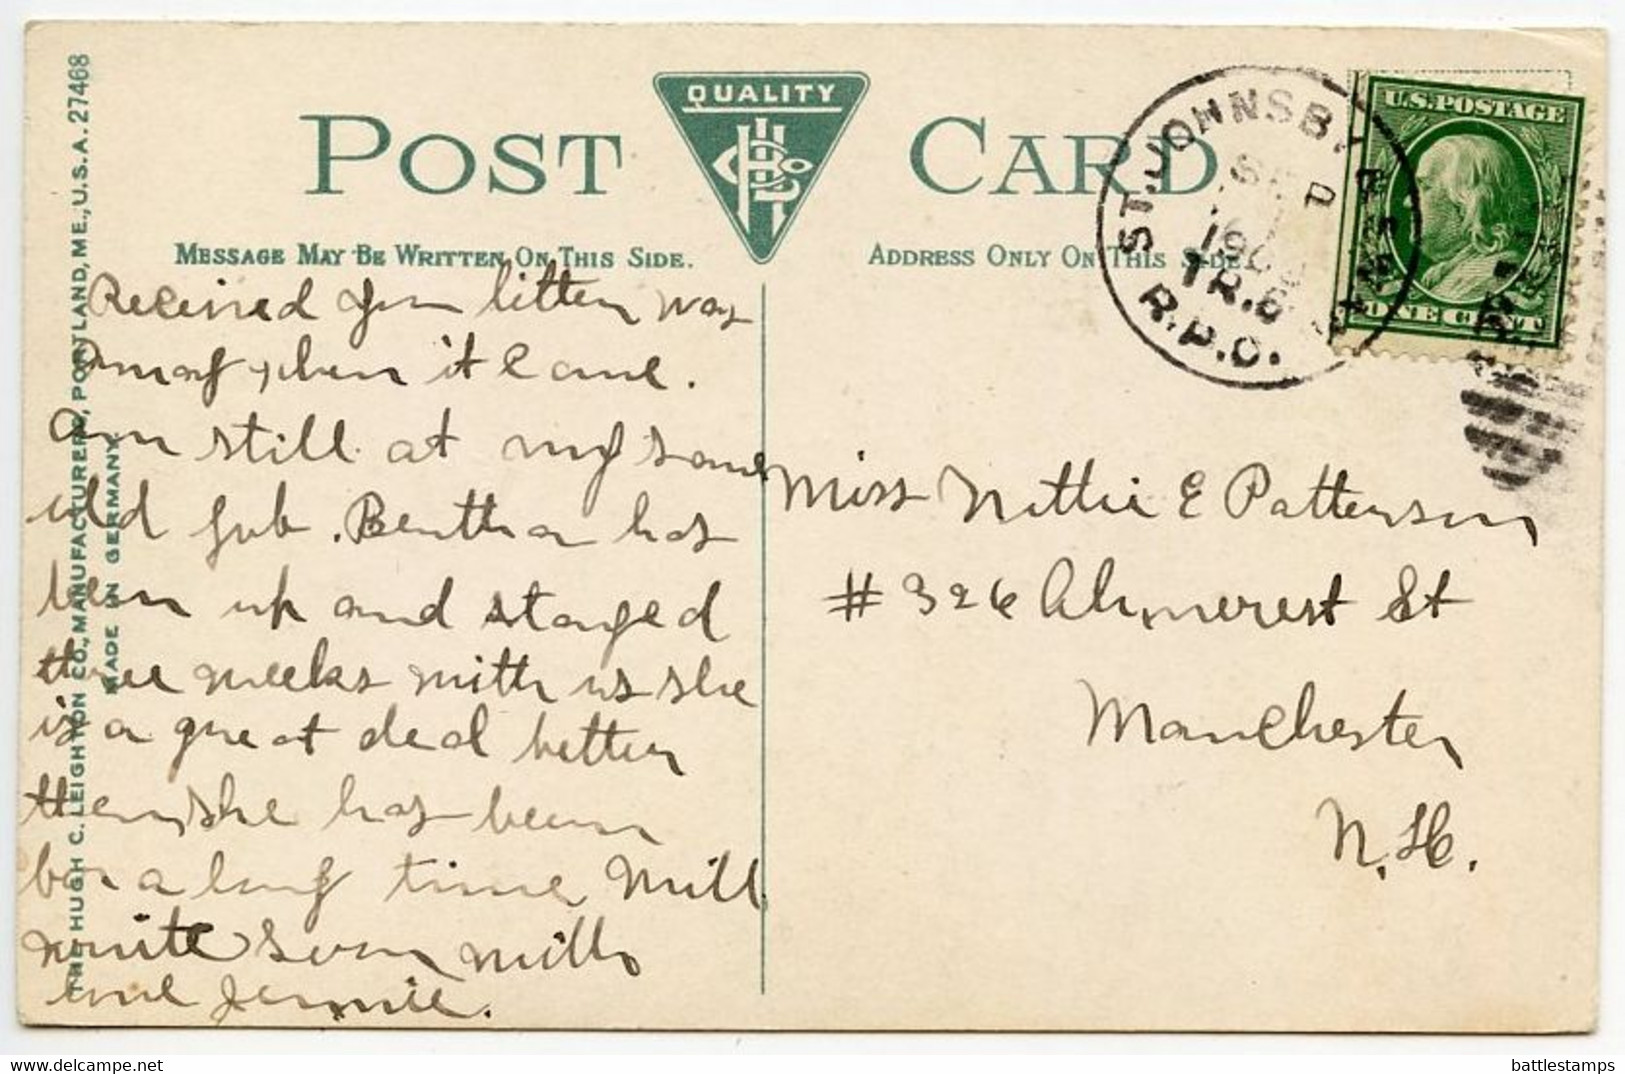 THE HUGH C. LEIGHTON CO., MANUFACTURERS, PORTLAND, ME., U.S.A. 27468
MADE IN GERMANY.
POST CARD
QUALITY
MESSAGE MAY BE WRITTEN ON THIS SIDE.
ADDRESS ONLY ON THIS SIDE
Received your letter was
away when it came.
Am still at my same
old job. Bertha has
been up and stayed
three weeks with us she
is a great deal better
then she has been
for a long time Will
write soon with
love Jennie.
ST. JOHNSB
TR. 6
R.P.O.
U.S. POSTAGE
ONE CENT
Miss Nettie E Patterson
# 326 St
Manchester
N.H.
Wow! item
battlestamps